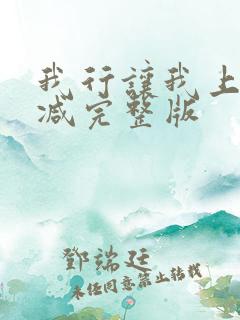 我行讓我上
减完整版
鄧端廷
未经同意禁止转载